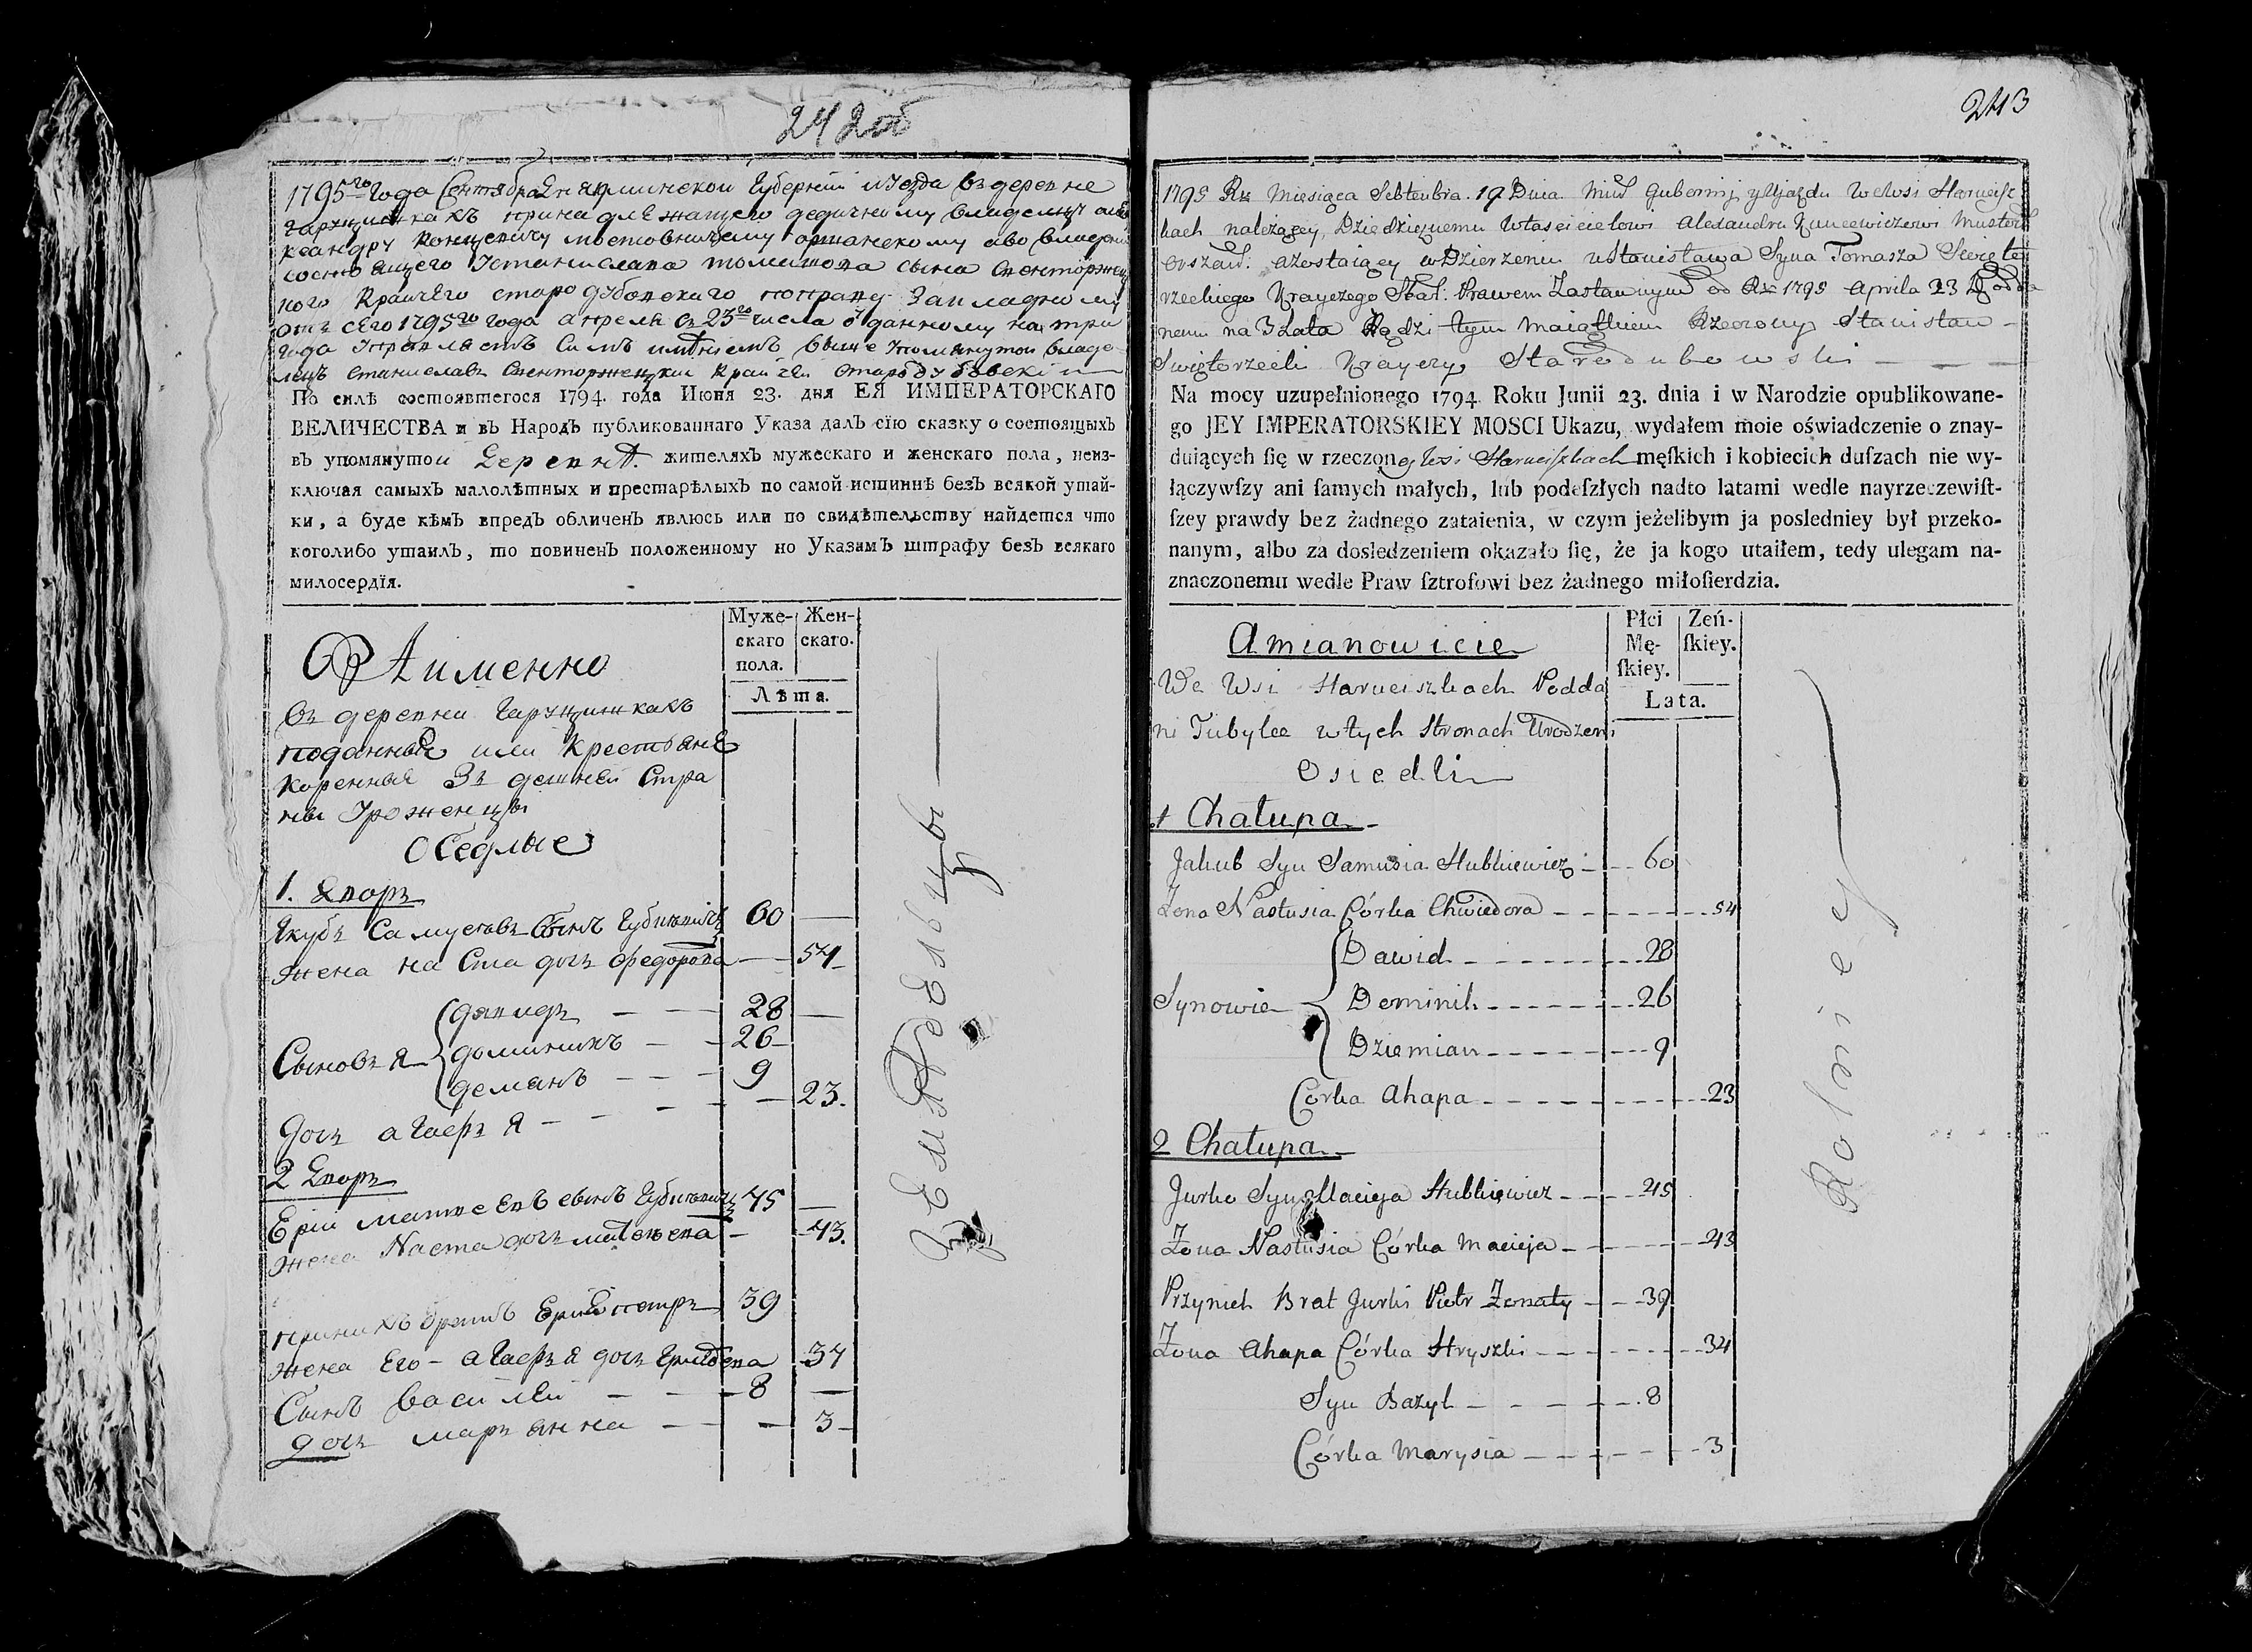 242об
1795го года Сентября минской Губернии и Уезда въ деревне
гарущишкахъ принадлежащего дедичному владелцу але
ксандру Концевичу мостовничему оршанскому аво владени
состоящего Устанислава томашова сына Свенторжец
кого Крайчего стародубовского поправу Закладному
отъ сего 1795го года апреля съ 23го числа отданному на три
года Управляетъ Симъ имѣниемъ выше упомянутой владе
лецъ Станиславъ Свенторжецкий Крайчей Стародубовский
По силѣ состоявшегося 1794. года Июня 23. дня ЕЯ ИМПЕРАТОРСКАГО
ВЕЛИЧЕСТВА и въ Народъ публикованнаго Указа далъ сїю сказку о состоящыхъ
въ упомянутой Деревнѣ. жителяхъ мужескаго и женскаго пола, неиз-
ключая самыхъ малолѣтныхъ и престарѣлыхъ по самой истиннѣ безъ всякой утай-
ки, а буде кѣмъ впредъ обличенъ явлюсь или по свидѣтельству найдется что
коголибо утаилъ, то повиненъ положенному по Указамъ штрафу безъ всякаго
милосердїя.
Муже-скаго пола. Жен-скаго.
Лѣта.
Аименно
въ деревни гарущишкахъ
поданные или крестьянѣ
коренные Зъ дешней Стра
ны Урожденцы
Оседлые
1. Дворъ
Якубъ Самусювъ Сынъ Губкевичъ 60 —
жена настa дочь федорова — 54
Сыновья давидъ — 28 —
доминикъ — 26
деманъ — 9
дочь агафья — 23.
2 Дворъ
Ерій матвеевъ сынъ Губкевичъ 45 —
жена Nаста дочь матвеева — 43.
принихъ братъ Ерій петръ 39
жена его агафья дочь Гришкова 34
Сынъ василей — 8 —
дочь марьянна — 3
Земледельцы
243
1795 Ru Miesiąca Sebtenbra 19 Dnia Mińs Gubernij y Ujazdu We Wsi Haruciſz
kach należącey Dziedzicznemu Własicielowi Alexandru Kuncewiczowi Mustow
orszań: a zostaiącey w Dzierzeniu u Stanisława Syna Tomasza Swięto
rzeckiego Krayczego Stał. Prawem Zastawnym od Ru 1795 Aprila 23 D. odda
nem na 3 Lata Rządzi tym maiątkiem Rzeczony Stanisław
Swiętorzecki Krayczy Starodubowski
Na mocy uzupełnionego 1794 Roku Junii 23. dnia i w Narodzie opublikowane-
go JEY IMPERATORSKIEY MOSCI Ukazu, wydałem moie oświadczenie o znay-
duiących ſię w rzeczoney Wsi Haruciſzkach męſkich i kobiecich duſzach nie wy-
łączywſzy ani ſamych małych, lub podeſzłych nadto latami wedle nayrzeczewiſt-
ſzey prawdy bez żadnego zataienia, w czym jeżelibym ja posledniey był przeko-
nanym, albo za dosledzeniem okazało ſię, że ja kogo utaiłem, tedy ulegam na-
znaczonemu wedle Praw ſztrofowi bez żadnego miłoſierdzia.
Płci Mę-ſkiey. Zeń-ſkiey.
Lata.
Amianowicie
We Wsi Haruciszkach Podda
ni Tubylce w tych Stronach Urodzeni
Osiedli
1 Chałupa
Jakub Syn Samusia Hubkiewicz 60
Zona Nastusia Córka Chwiedora 54
Synowie Dawid 28
Dominik 26
Dziemian 9
Córka Ahapa 23
2 Chałupa
Jurko Syn Macieja Hubkiewicz 45
Zona Nastusia Córka Macieja 43
Przynich Brat Jurki Piotr Zonaty 39
Zona Ahapa Córka Hryszki 34
Syn Bazyl 8
Córka Marysia 3
Rolniey